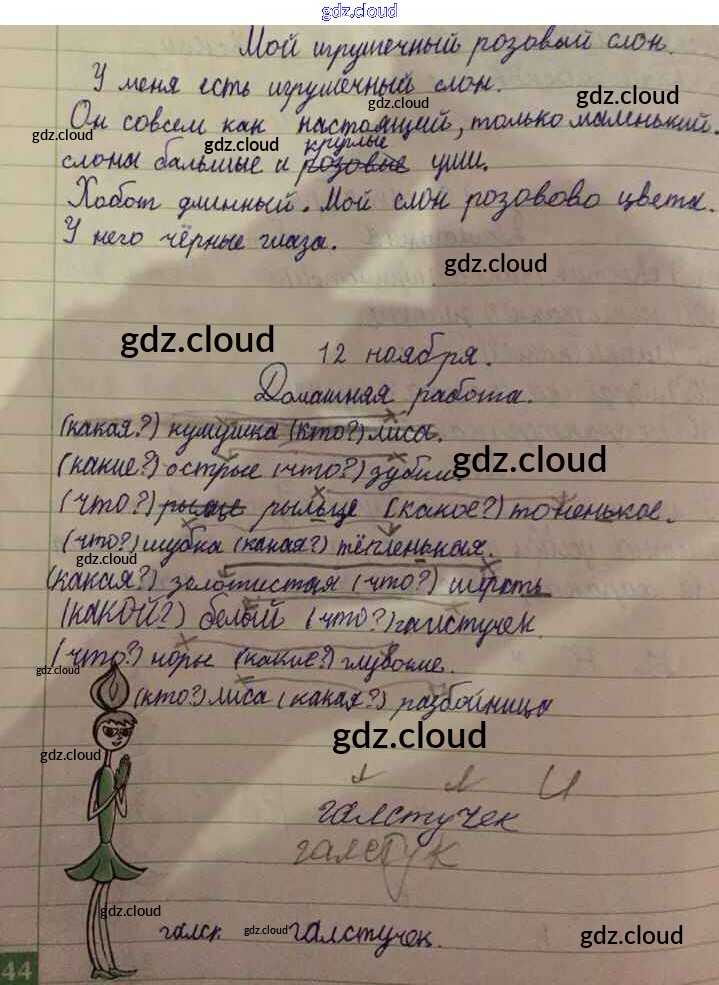 gdz.cloud
Мой игрушечный розовый слон.
У меня есть игрушечный слон.
gdz.cloud
gdz.cloud
Он совсем как настоящий, только маленький.
gdz.cloud
круглые
слоны балшые и розовые уши.
Хобот длинный. Мой слон розовово цвета.
У него чёрные глаза.
gdz.cloud
gdz.cloud
12 ноября.
Домашняя работа.
(какая?) кумушка (кто?) лиса.
(какие?) острые (что?) зубы
gdz.cloud
(что?) рыльце (какое?) тоненькое.
(что?) шубка (какая?) тёпленькая.
gdz.cloud
(какая?) золотистая (что?) шерсть
(КАКОЙ?) белый (что?) галстучек
(что?) норы (какие?) глубокие.
gdz.cloud
(кто?) лиса (какая?) разбойница
gdz.cloud
gdz.cloud
И
галстучек
галстук
gdz.cloud
галск gdz.cloud галстучек.
gdz.cloud
44